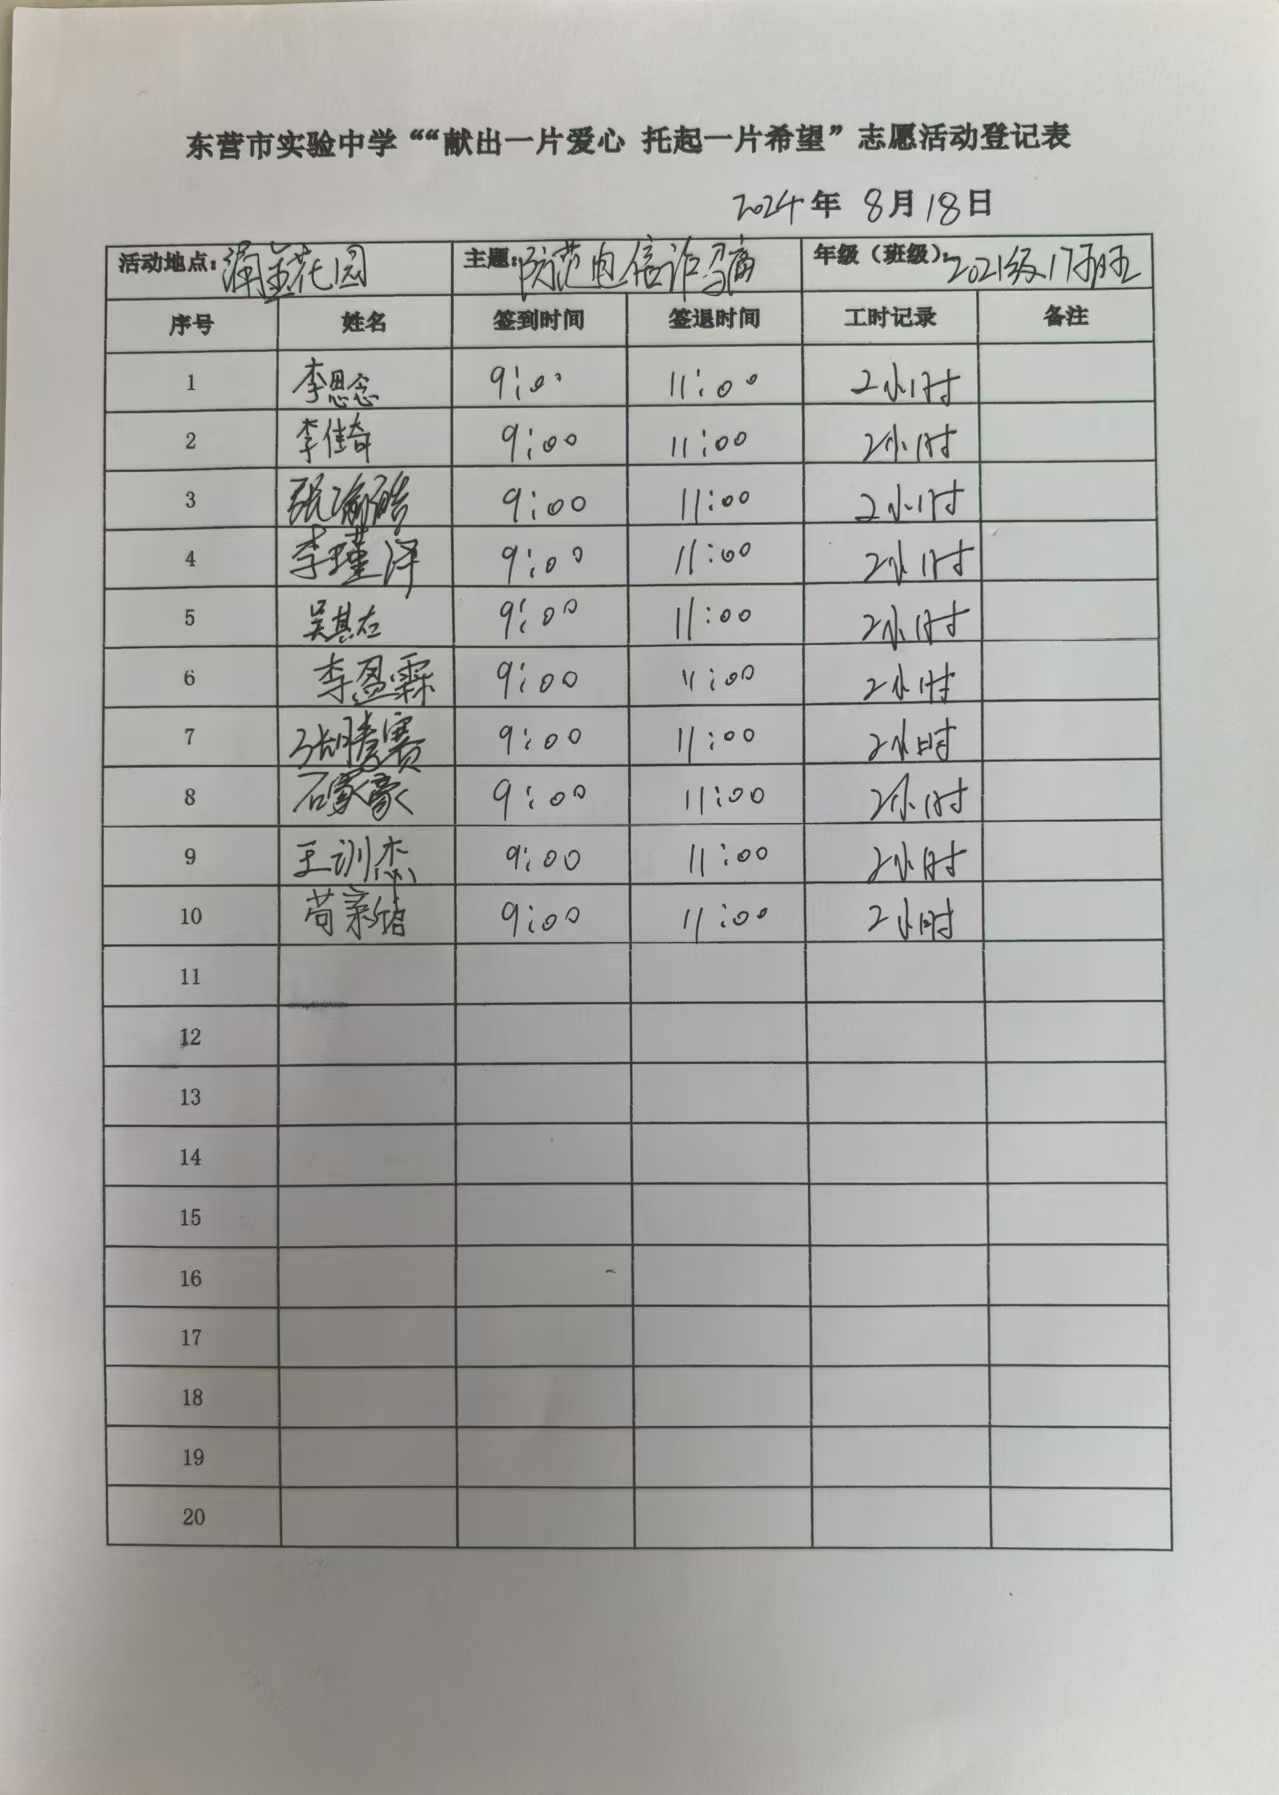 东营市实验中学““献出一片爱心 托起一片希望”志愿活动登记表
2024年 8月18日
活动地点:涌金花园 主题:防范电信诈骗 年级(班级):2021级17班
序号 姓名 签到时间 签退时间 工时记录 备注
1 李恩念 9:00 11:00 2小时
2 李佳奇 9:00 11:00 2小时
3 张瑜皓 9:00 11:00 2小时
4 李瑾泽 9:00 11:00 2小时
5 吴其右 9:00 11:00 2小时
6 李盈霖 9:00 11:00 2小时
7 张腾赛 9:00 11:00 2小时
8 石家豪 9:00 11:00 2小时
9 王训杰 9:00 11:00 2小时
10 苟 9:00 11:00 2小时
11
12
13
14
15
16
17
18
19
20